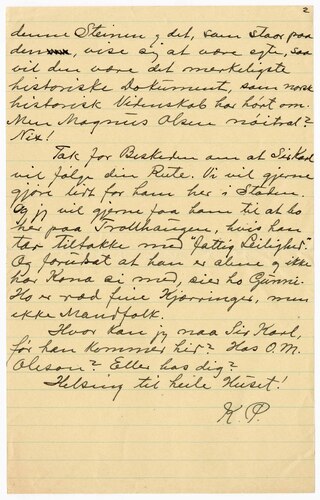 2
denne Steinen, og det, som staar paa
den, vise sig at være egte, saa
vil den være det merkeligste
historiske Dokument, som norsk
historisk Videnskab har hört om.
Men Magnus Olsen nöitral?
Nix!
Tak for Beskeden om at Sir Karl
vil fölge din Rute. Vi vil gjerne
gjöre lidt for ham her i Staden.
Og jeg vil gjerne faa ham til at bo
her paa Trollhaugen, hvis han
tar tiltakke med "fattig Leilighed".
Og forudsat at han er alene og ikke
har Kona si med, sier ho Gunni.
Ho er ræd fine Kjærringer, men
ikke Mandfolk.
Hvor kan jeg naa Sir Karl,
för han kommer hid? Hos O.M.
Oleson? Eller hos dig?
Helsing til heile Huset!
K. P.